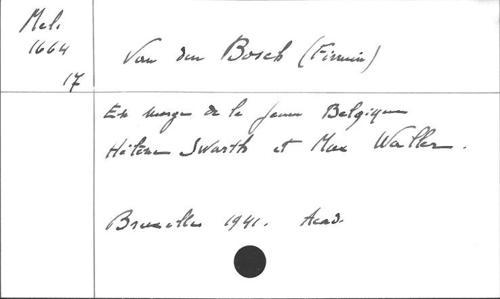 Mél.
1664
17
Van den Bosch (Firmin)
En marge de la Jeune Belgique
Hélène Swarth et Max Waller.
Bruxelles 1941. Acad.